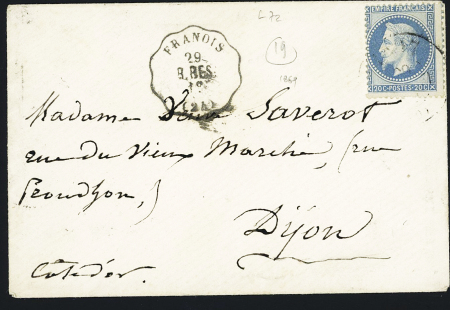 L72
19
1869
EMPIRE FRANÇAIS
20C POSTES 20C
FRANOIS
29
B.RES.
(24)
Madame Saverot
rue du Vieux Marché, (rue
Proudhon,)
Dijon
Côte d'or.